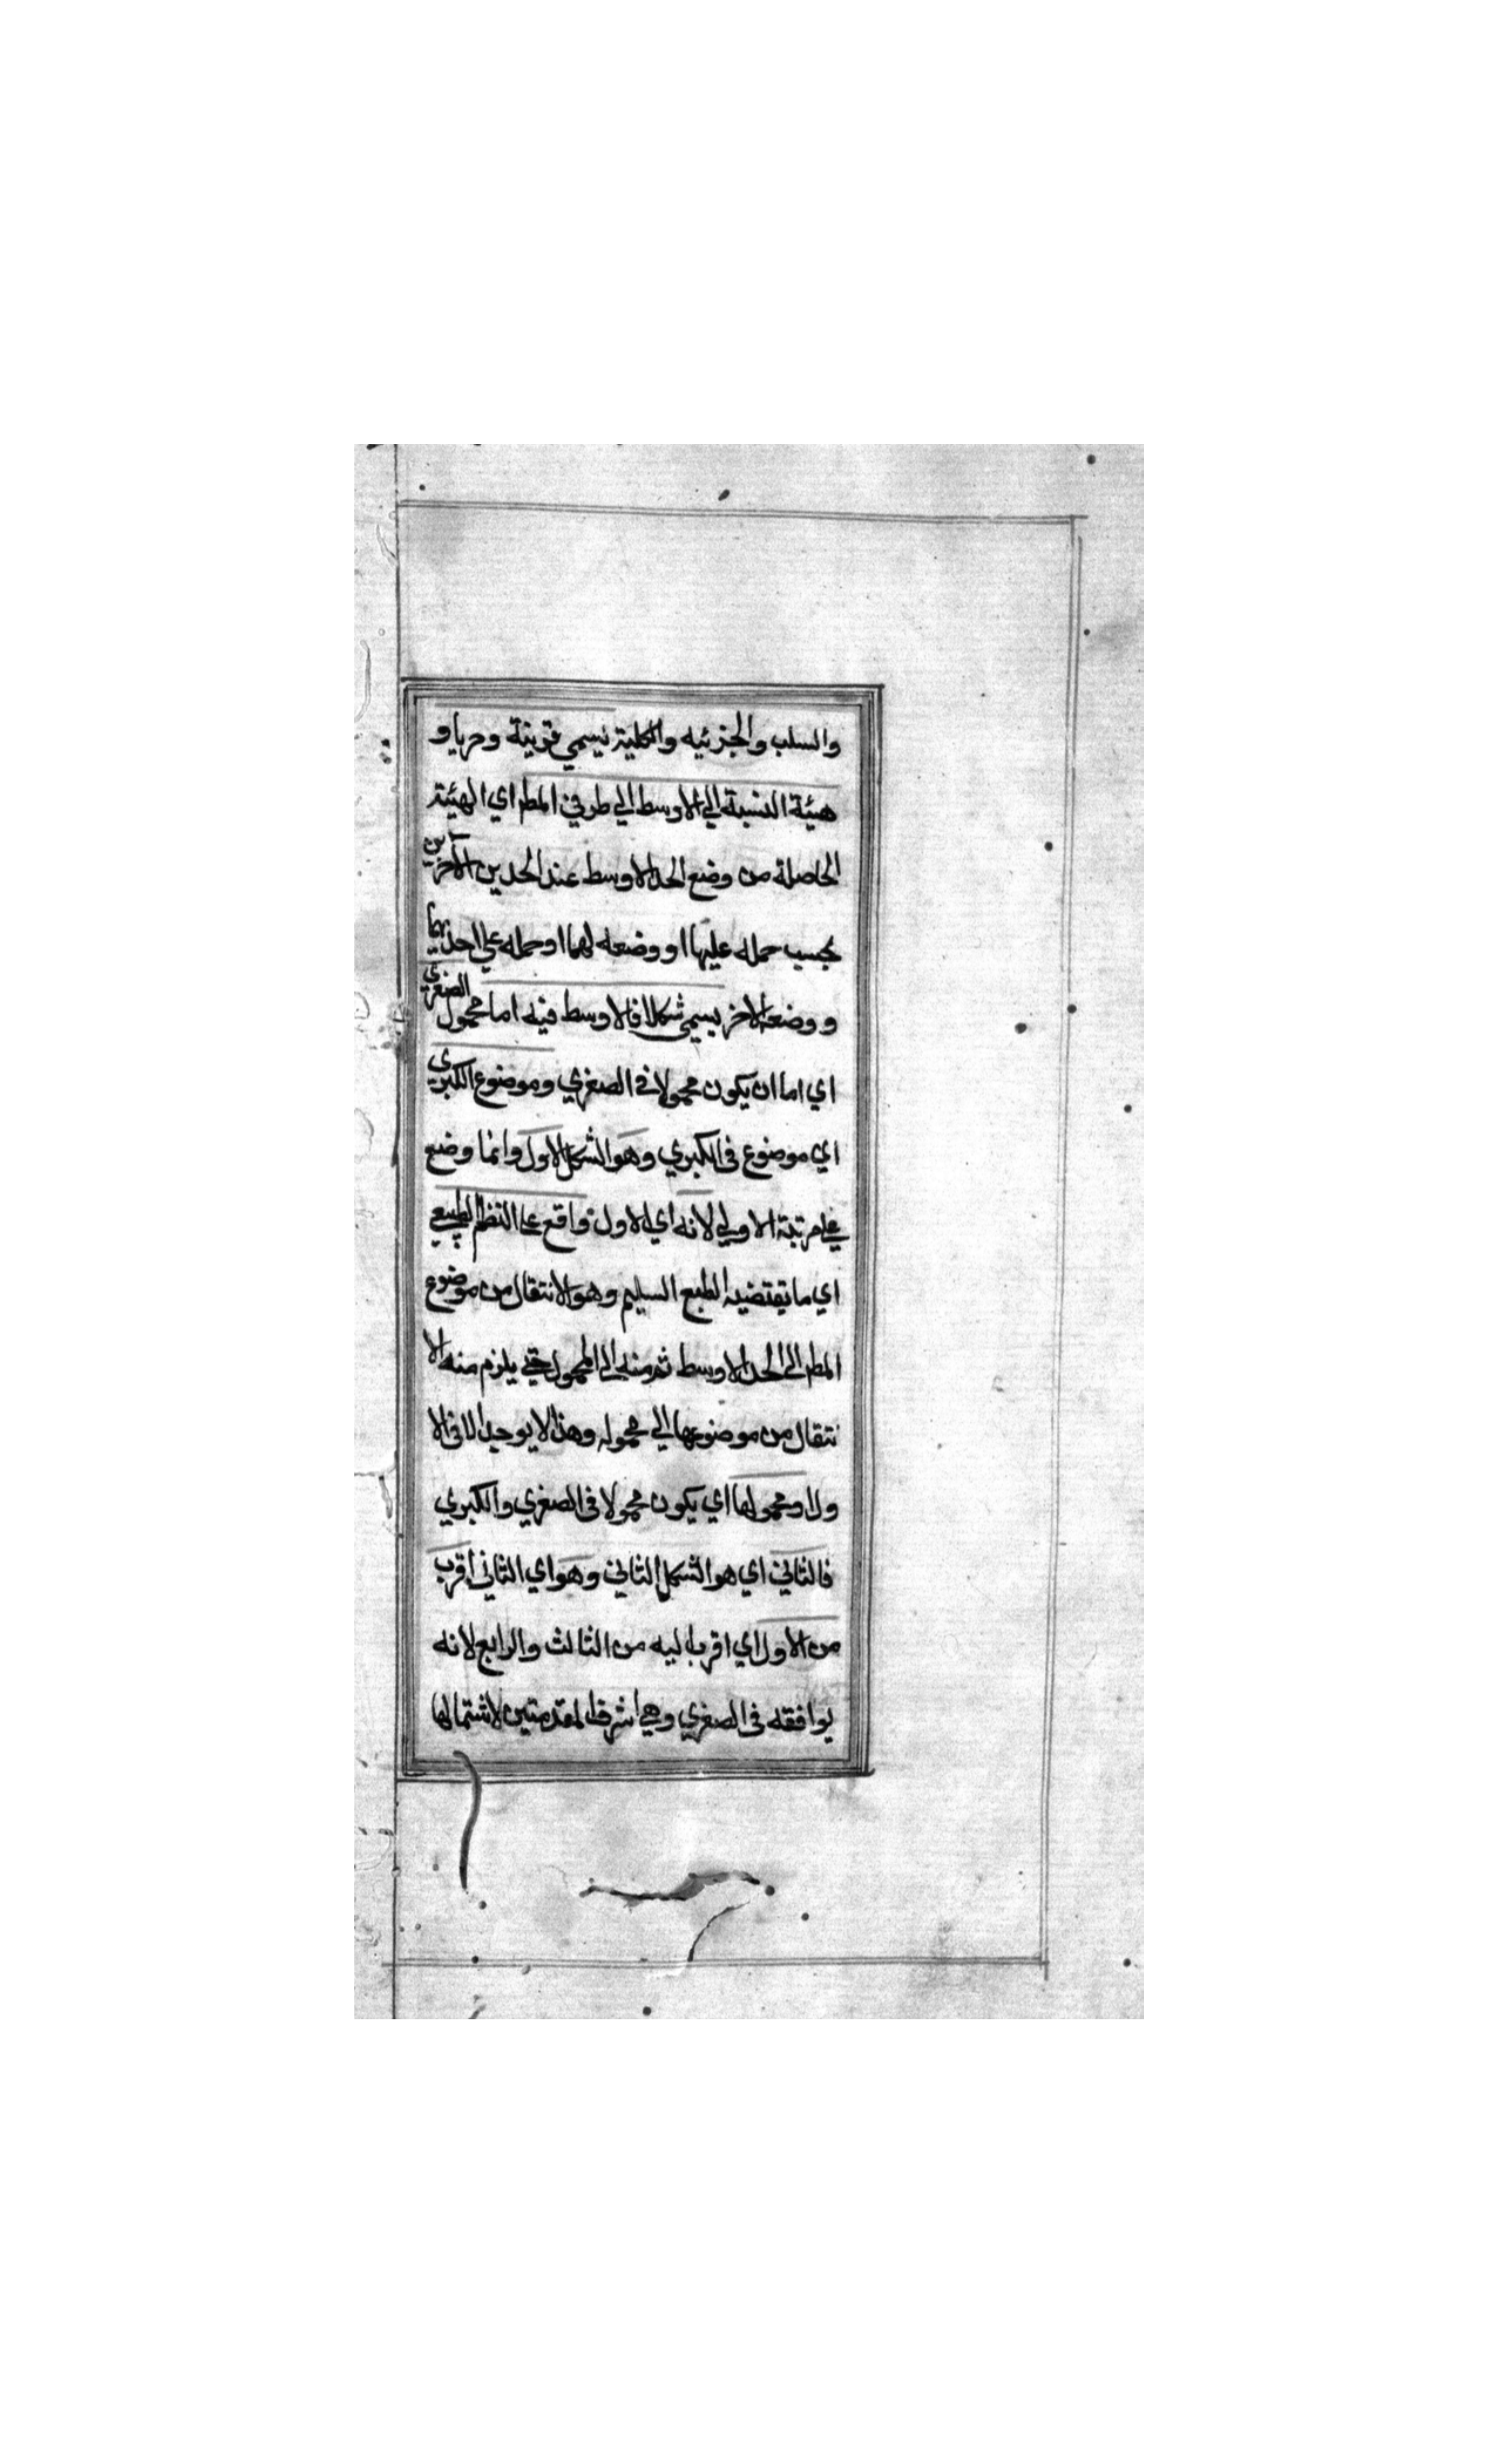 والسلب والجزئيه والكلية يسمي قرينة وضربا و
هيئة النسبة الي الاوسط الي طرفي المط اي الهيئة
الحاصلة من وضع الحد الاوسط عند الحدين الآخرين
بحسب حمله عليها او وضعه لهما او حمله علي احديهما
ووضعه الاخر يسمي شكلا فالاوسط فيه اما محمول الصغري
اي اما ان يكون محمولا في الصغري وموضوع الكبري
اي موضوع في الكبري وهو الشكل الاول وانما وضع
علي مرتبة الاولي لانه اي الاول واقع علي النظم الطبيعي
اي ما يقتضيه الطبع السليم وهو الانتقال من موضوع
المط الي الحد الاوسط ثم منه الي المحمول حتي يلزم منه الا
نتقال من موضوعها الي محموله وهذا لا يوجد الا في الا
ول او محمولها اي يكون محمولا في الصغري والكبري
فالثاني اي هو الشكل الثاني وهو اي الثاني اقرب
من الاول اي اقرب اليه من الثالث والرابع لانه
يوافقه في الصغري وهي اشرف المقدمتين لاشتمالها